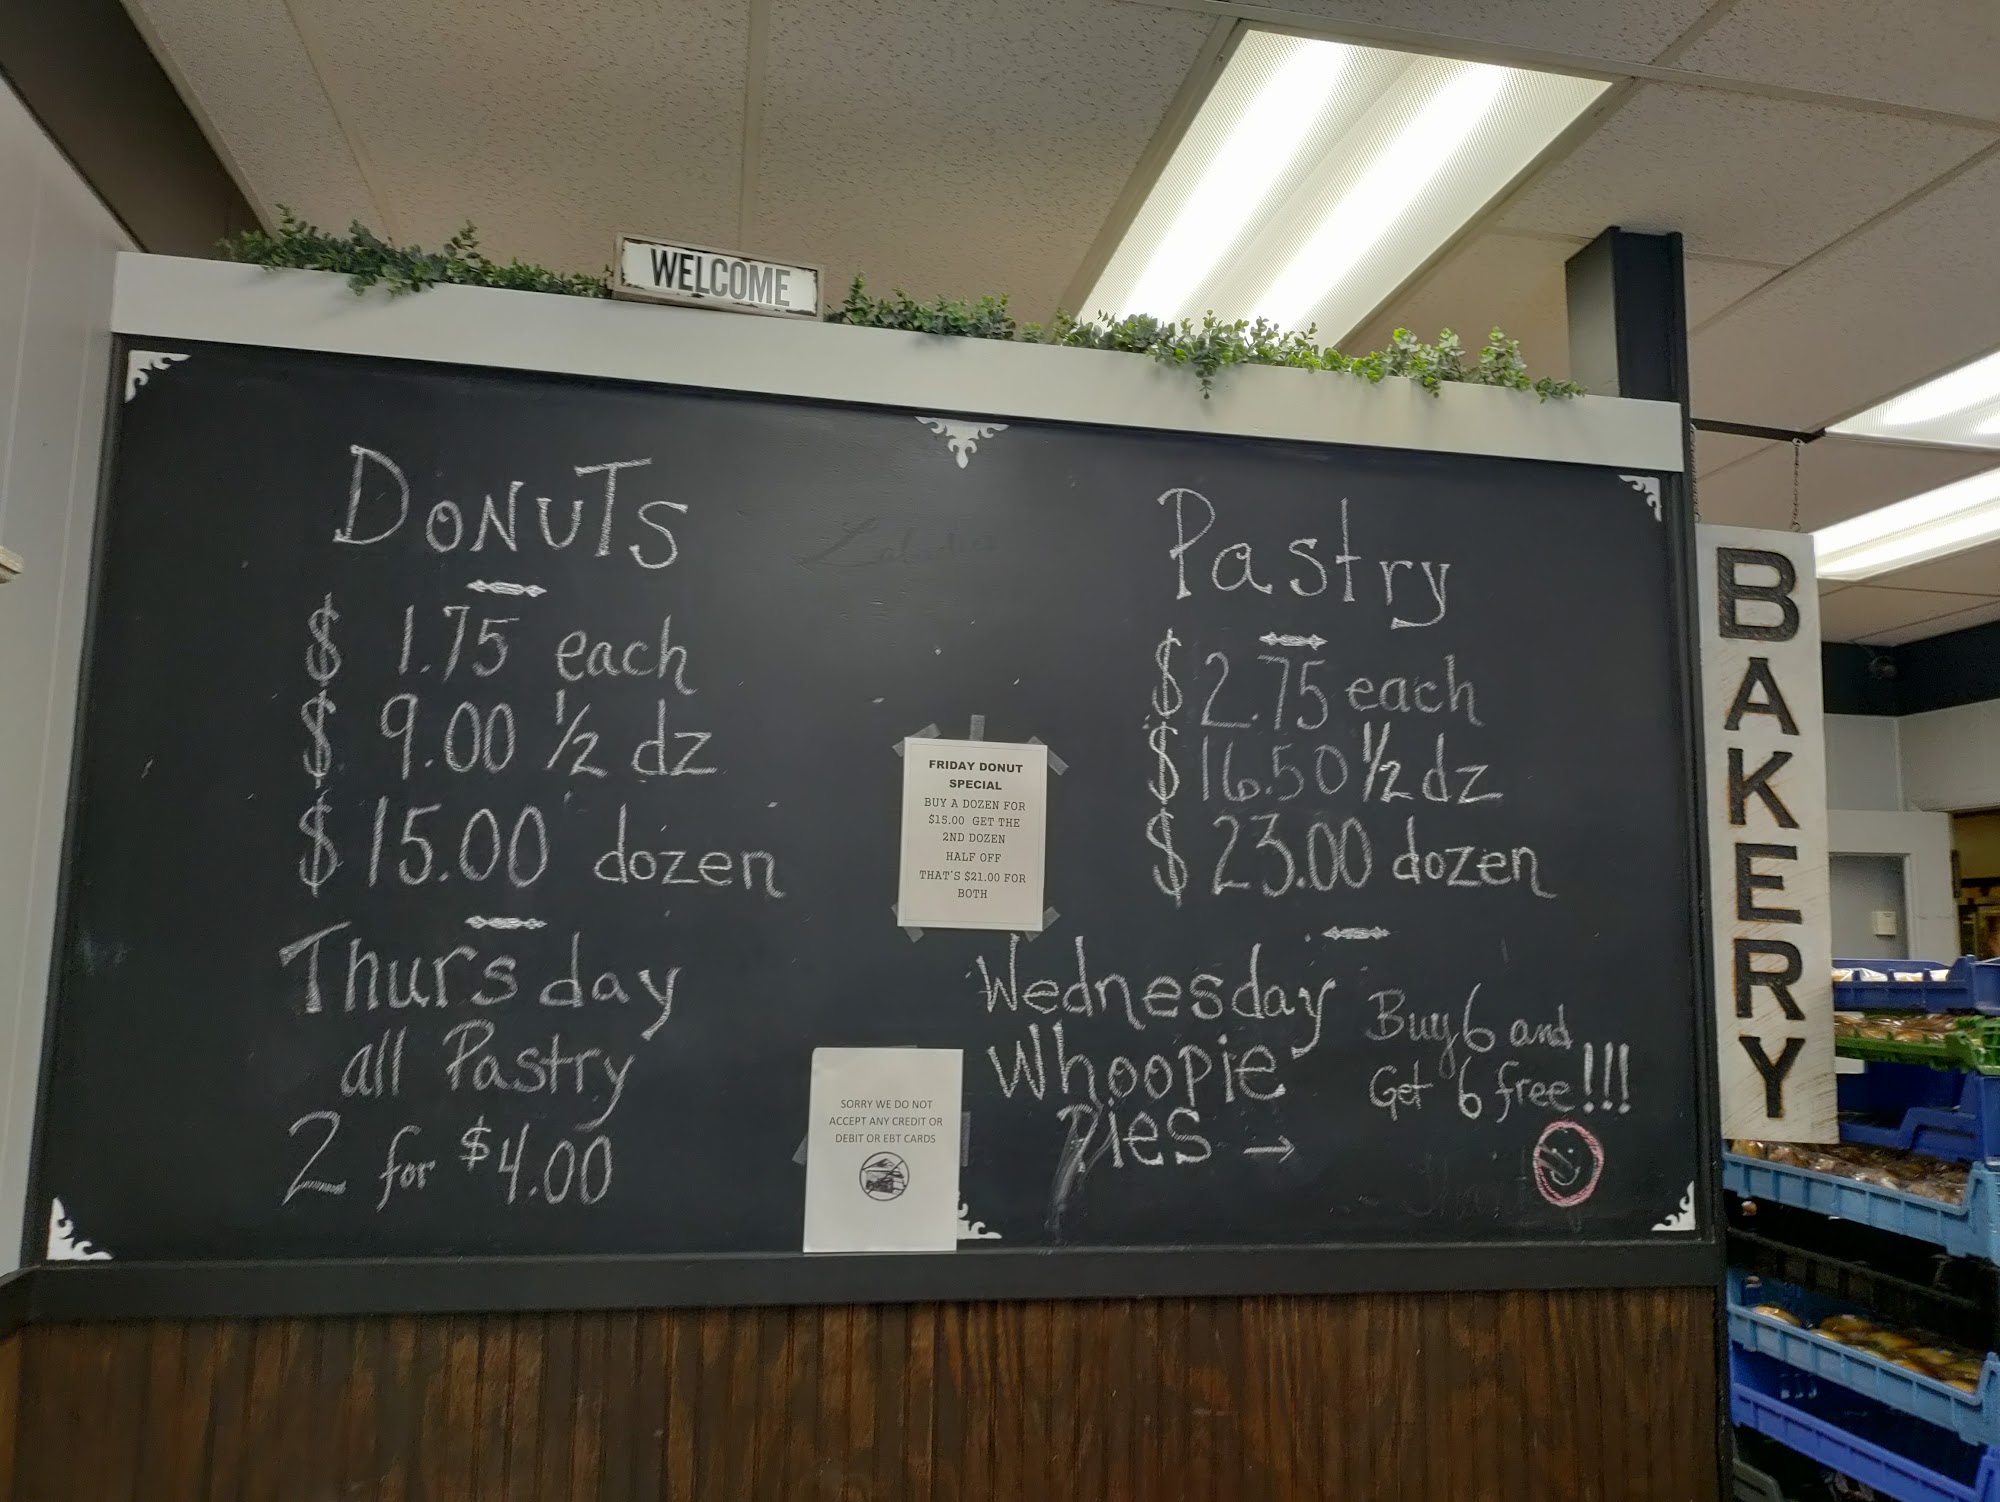 WELCOME
DONUTS
$ 1.75 each
$ 9.00 1/2 dz
$ 15.00 dozen
Thursday
all Pastry
2 for $4.00
FRIDAY DONUT
SPECIAL
BUY A DOZEN FOR
$15.00 GET THE
2ND DOZEN
HALF OFF
THAT'S $21.00 FOR
BOTH
SORRY WE DO NOT
ACCEPT ANY CREDIT OR
DEBIT OR EBT CARDS
Pastry
$ 2.75 each
$ 16.50 1/2 dz
$ 23.00 dozen
Wednesday
Whoopie
Pies →
Buy 6 and
Get 6 free!!!
BAKERY